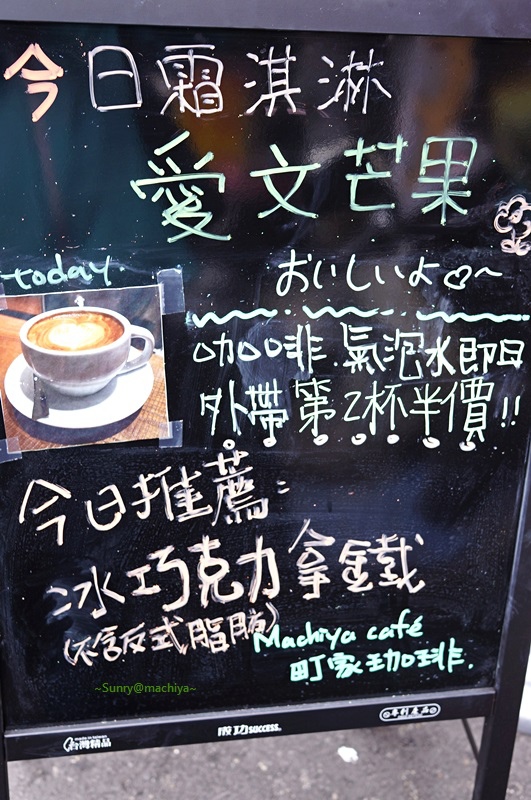 今日霜淇淋
愛文芒果
today.
おいしいよ♡~
咖啡 氣泡水即日
外帶第2杯半價!!
今日推薦:
冰巧克力拿鐵
(不含反式脂肪)
Machiya café
町家珈琲.
~Sunry@machiya~
made in taiwan
台灣精品
成功 SUCCESS.
專利產品